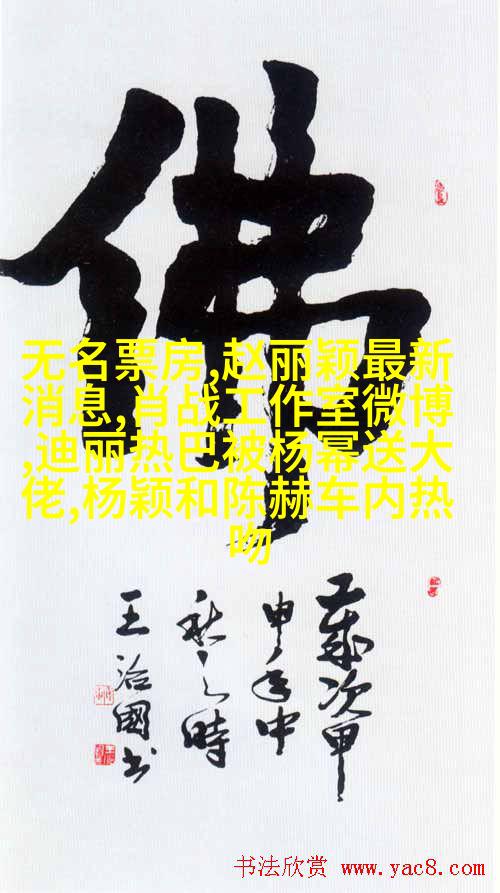 佛
无名票房,赵丽颖最新
消息,肖战工作室微博
,迪丽热巴被杨幂送大
佬,杨颖和陈赫车内热
吻
歲次甲
申年中
秋之時
王治國书
书法欣赏 www.yac8.com